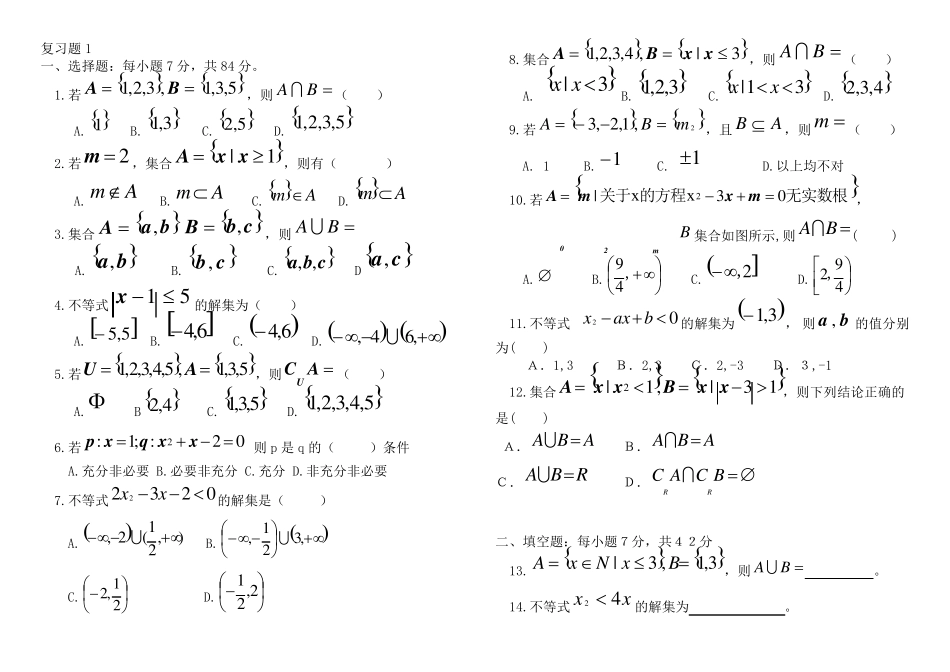 复习题 1
一、选择题：每小题 7 分，共 84 分。
1.若 A={1,2,3},B={1,3,5}，则 A∩B=（　　）
A.{1}　B.{1,3}　C.{2,5}　D.{1,2,3,5}
2.若 m=2，集合 A={x|x≥1}，则有（　　　）
A.m∉A　B.m⊂A　C.{m}∈A　D.{m}⊂A
3.集合 A={a,b} B={b,c}，则 A∪B=
A.{a,b}　B.{b,c}　C.{a,b,c}　D {a,c}
4.不等式 |x-1|≤5 的解集为（　　）
A.[-5,5]　B.[-4,6]　C.(-4,6)　D.(-∞,-4)∪(6,+∞)
5.若 U={1,2,3,4,5},A={1,3,5}，则 C_U A=（　　）
A.Φ　B{2,4}　C.{1,3,5}　D.{1,2,3,4,5}
6.若 p:x=1;q:x²+x-2=0 则 p 是 q 的（　　）条件
A.充分非必要 B.必要非充分 C.充分 D.非充分非必要
7.不等式 2x²-3x-2<0 的解集是（　　）
A.(-∞,-2)∪(1/2,+∞)　B.(-∞,-1/2)∪(3,+∞)
C.(-2,1/2)　D.(-1/2,2)
8.集合 A={1,2,3,4},B={x|x≤3}，则 A∩B=（　　）
A.{x|x<3} B.{1,2,3}　C.{x|1<x<3}　D.{2,3,4}
9.若 A={-3,-2,1},B={m²}，且 B⊆A，则 m=（　　）
A. 1　B.-1　C. ±1　D.以上均不对
10.若 A={m|关于x的方程x²-3x+m=0无实数根},
B 集合如图所示,则 A∩B=(　　)
0　2　m
A.∅　B.(9/4,+∞)　C.(-∞,2]　D.[2,9/4)
11.不等式 x²-ax+b<0 的解集为 (-1,3)， 则 a,b 的值分别
为(　　)
A．1,3　B．2,3　C．2,-3　D．3,-1
12.集合 A={x|x²<1},B={x||x-3|>1}，则下列结论正确的
是(　　)
A．A∪B=A　B．A∩B=A
C．A∪B=R　D．C_R A∩C_R B=∅
二、填空题：每小题 7 分，共 4 2 分
13.A={x∈N|x≤3},B={1,3}，则 A∪B=________。
14.不等式 x²<4x 的解集为________。